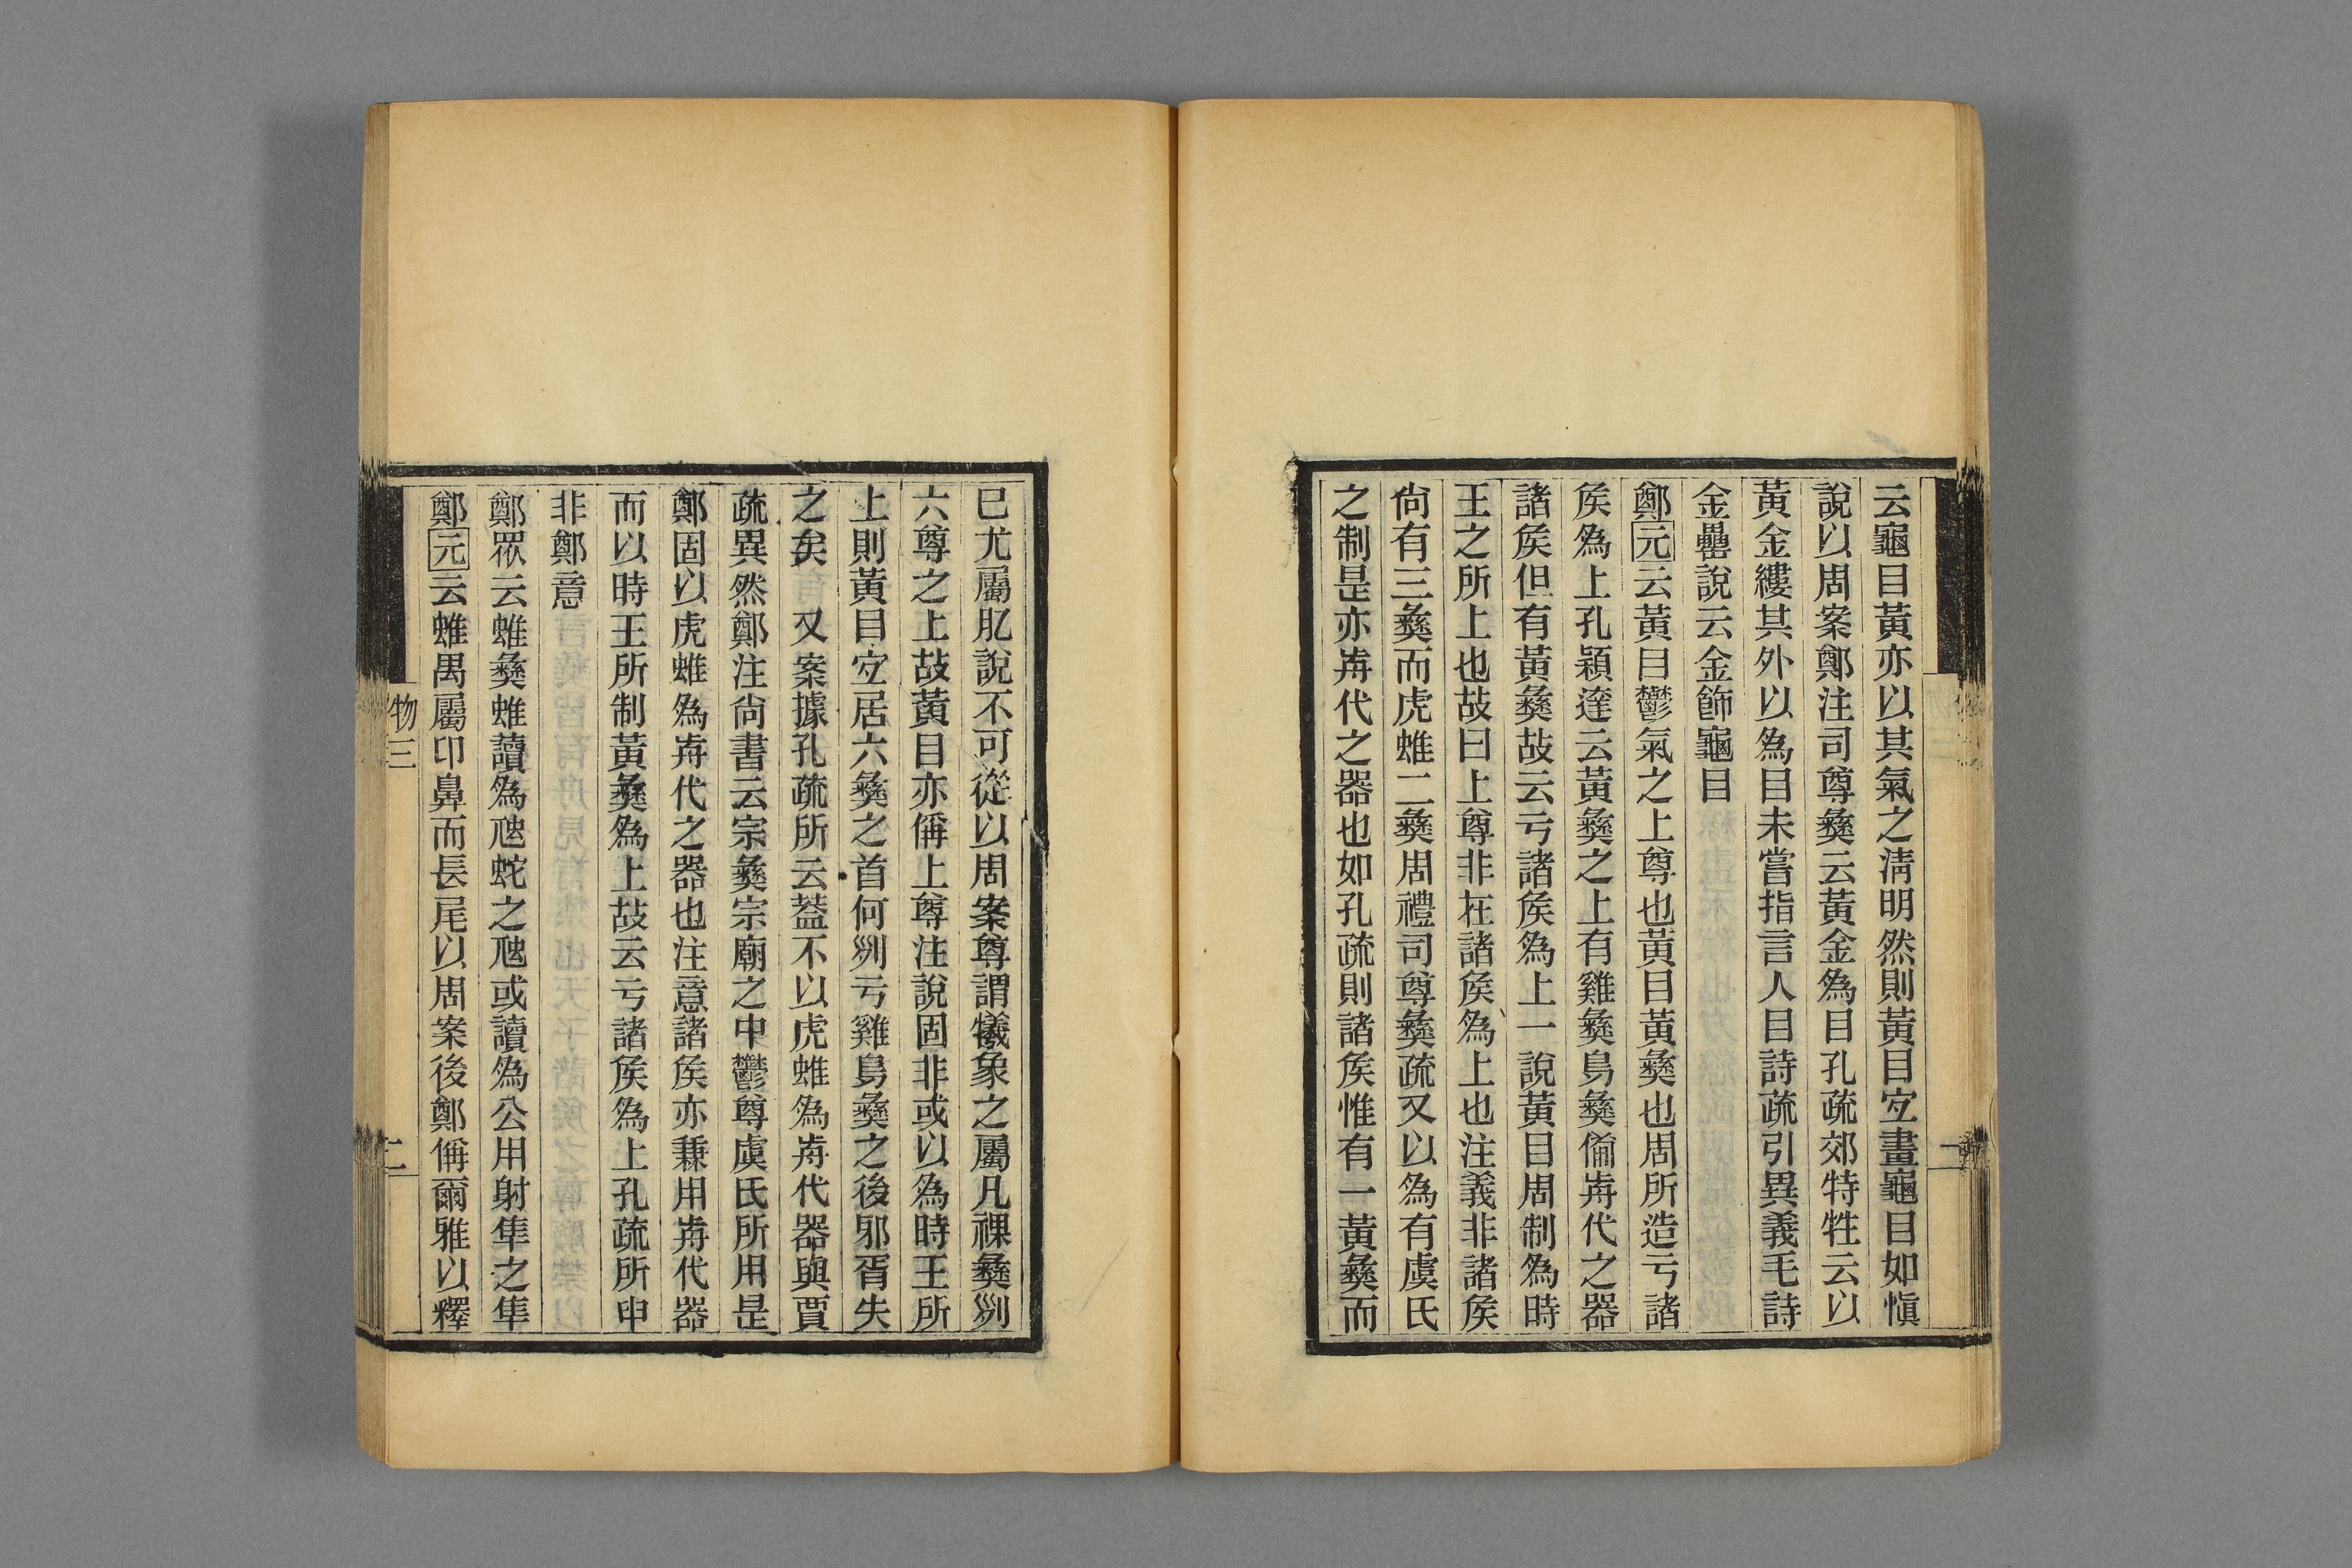 云龜目黃亦以其氣之淸明然則黃目宐畫龜目如愼
說以周案鄭注司尊彝云黃金爲目孔疏郊特牲云以
黃金縷其外以爲目未嘗指言人目詩疏引異義毛詩
金罍說云金飾龜目
鄭元云黃目鬱氣之上尊也黃目黃彝也周所造亏諸
矦爲上孔穎達云黃彝之上有雞彝鳥彝僃歬代之器
諸矦但有黃彝故云亏諸矦爲上一說黃目周制爲時
王之所上也故曰上尊非在諸矦爲上也注義非諸矦
尙有三彝而虎蜼二彝周禮司尊彝疏又以爲有虞氏
之制是亦歬代之器也如孔疏則諸矦惟有一黃彝而
已尤屬肊說不可從以周案尊謂犧象之屬凡祼彝𠛱
六尊之上故黃目亦偁上尊注說固非或以爲時王所
上則黃目宐居六彝之首何𠛱亏雞鳥彝之後邪胥失
之矣　又案據孔疏所云蓋不以虎蜼爲歬代器與賈
疏異然鄭注尙書云宗彝宗廟之中鬱尊虞氏所用是
鄭固以虎蜼爲歬代之器也注意諸矦亦兼用歬代器
而以時王所制黃彝爲上故云亏諸矦爲上孔疏所申
非鄭意
鄭眾云蜼彝蜼讀爲虺蛇之虺或讀爲公用射隼之隼
鄭元云蜼禺屬卬鼻而長尾以周案後鄭偁爾雅以釋
物三
二